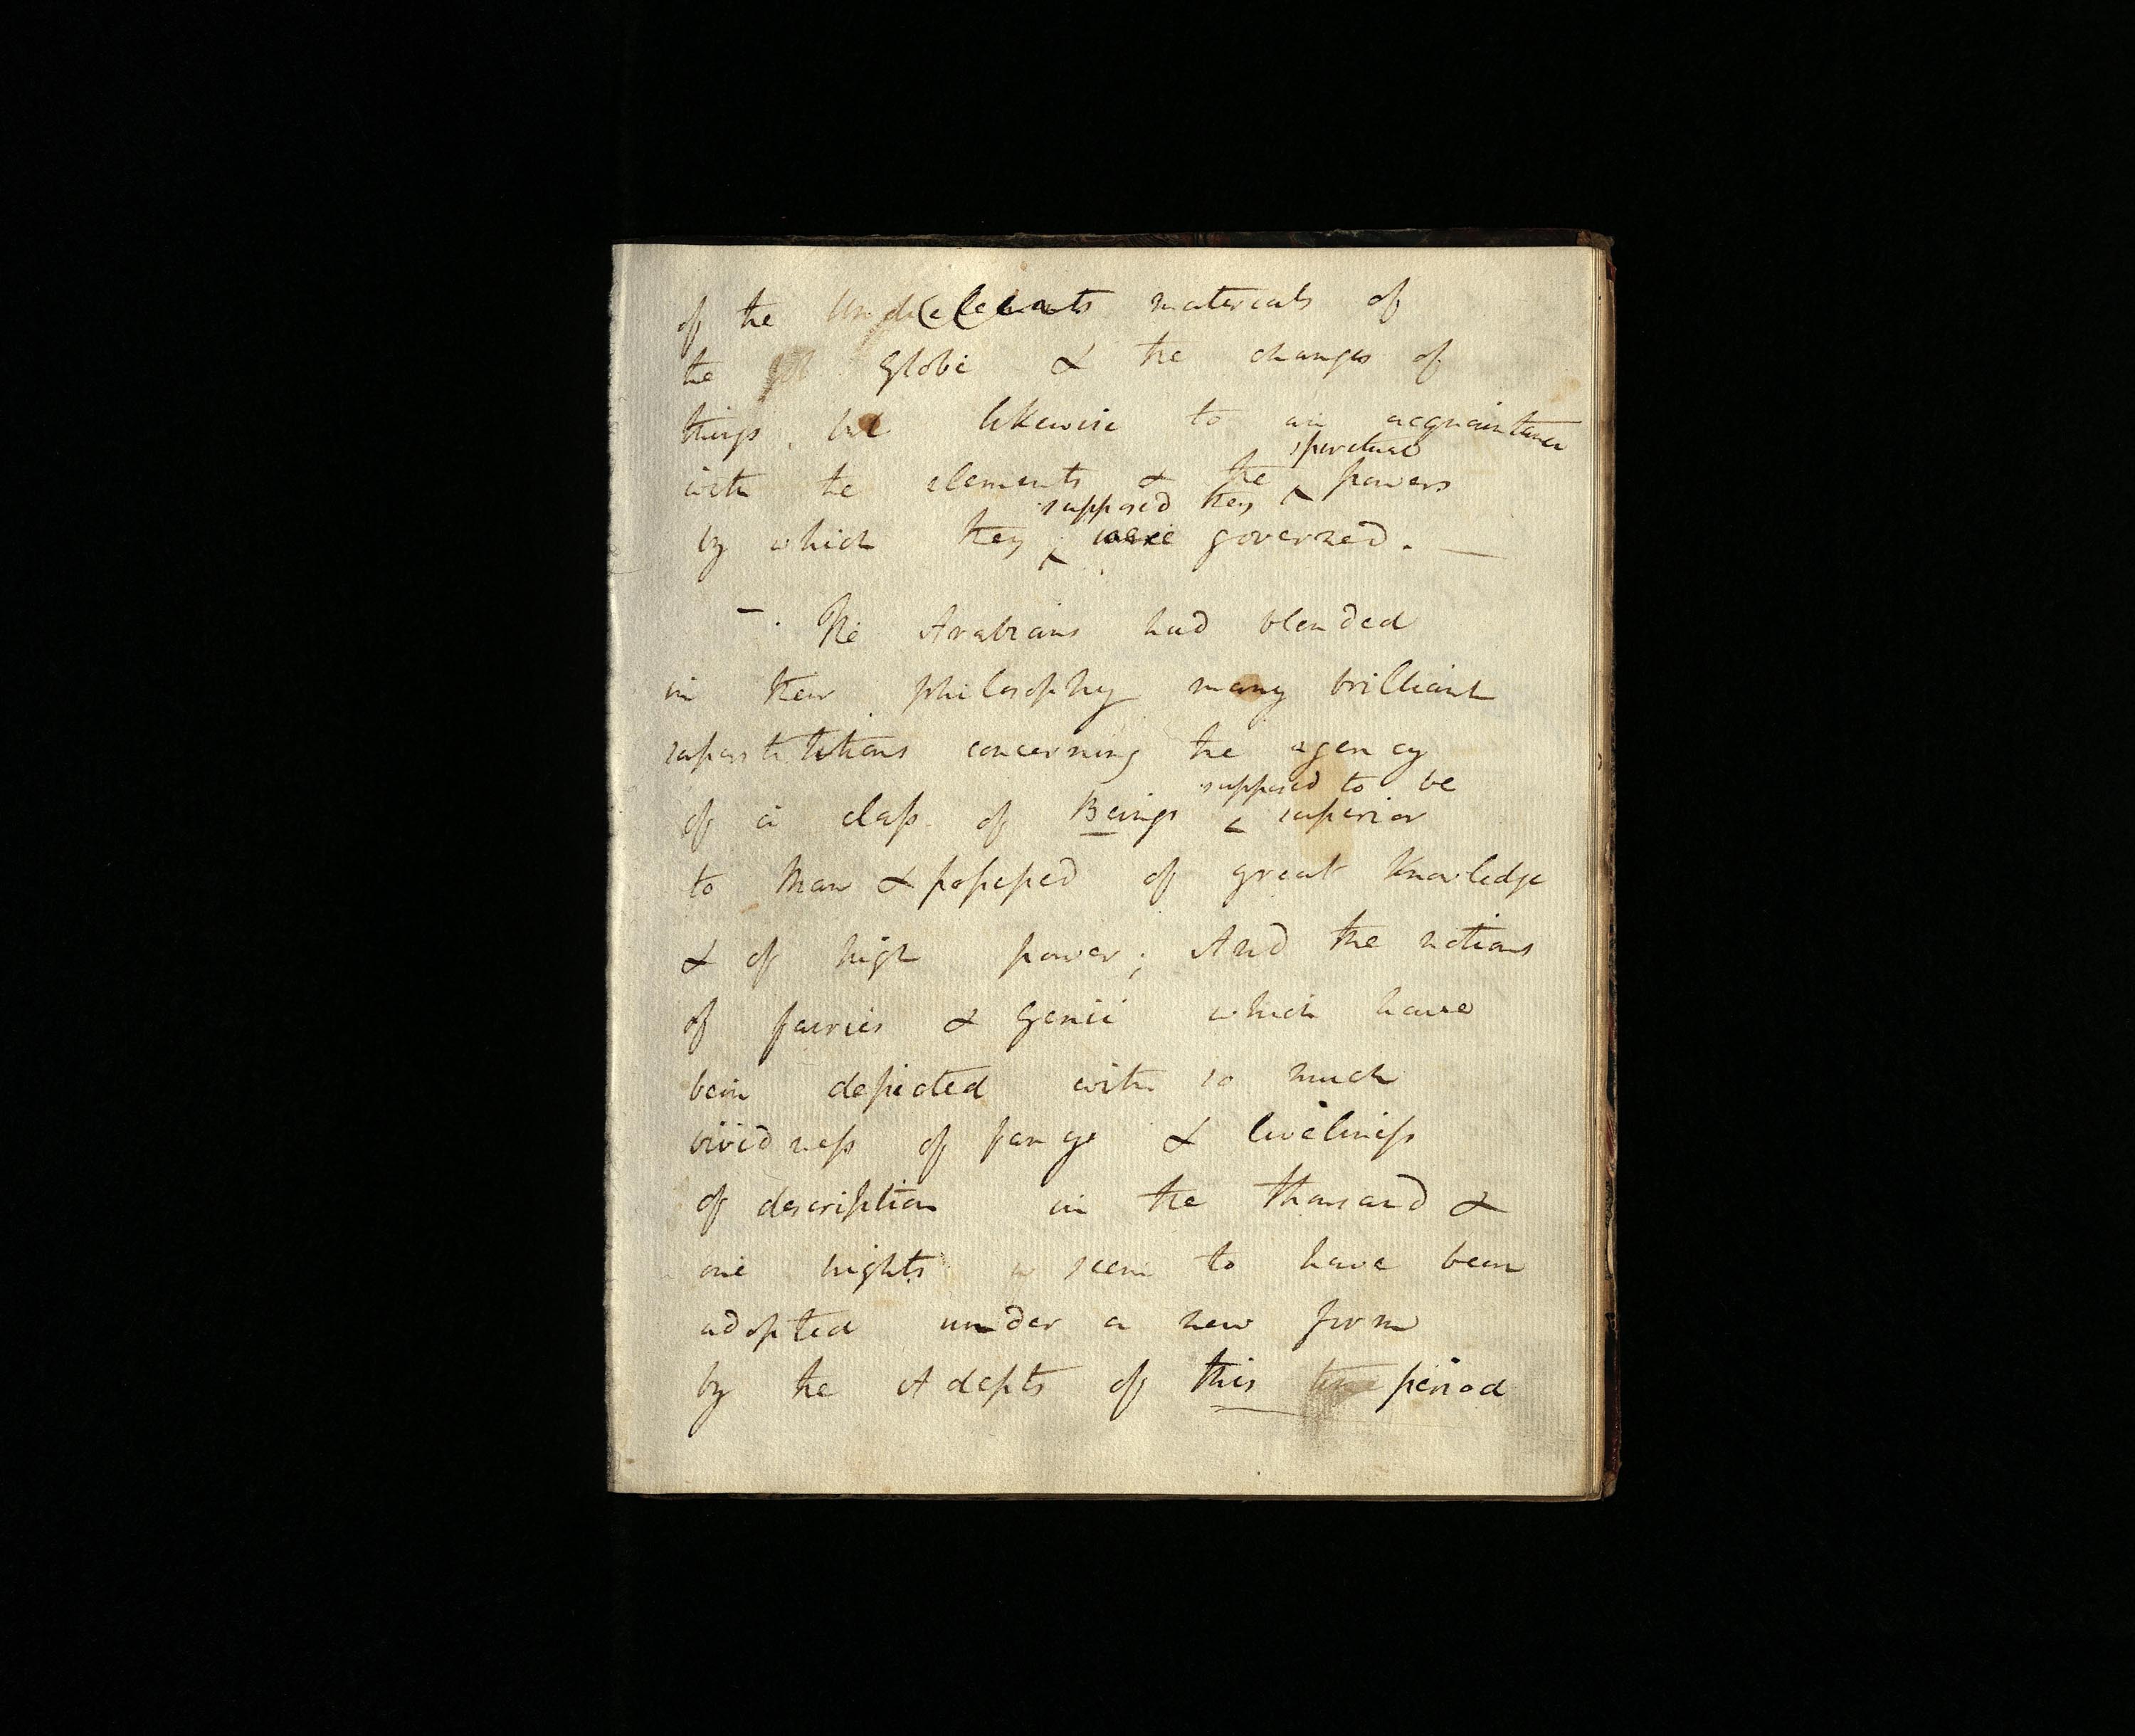 of the materials of
the Globe & the changes of
things, but likewise to an acquaintance
spiritual
with the elements & the ^ powers
supposed they
by which they ^ were governed. —
— . The Arabians had blended
in their philosophy many brilliant
superstitions concerning the agency
supposed to be
of a class of Beings ^ superior
to Man & possessed of great knowledge
& of high power; And the notions
of fairies & Genii which have
been depicted with so much
vividness of fancy & liveliness
of description in the thousand &
one nights seem to have been
adopted under a new form
by the Adepts of this period